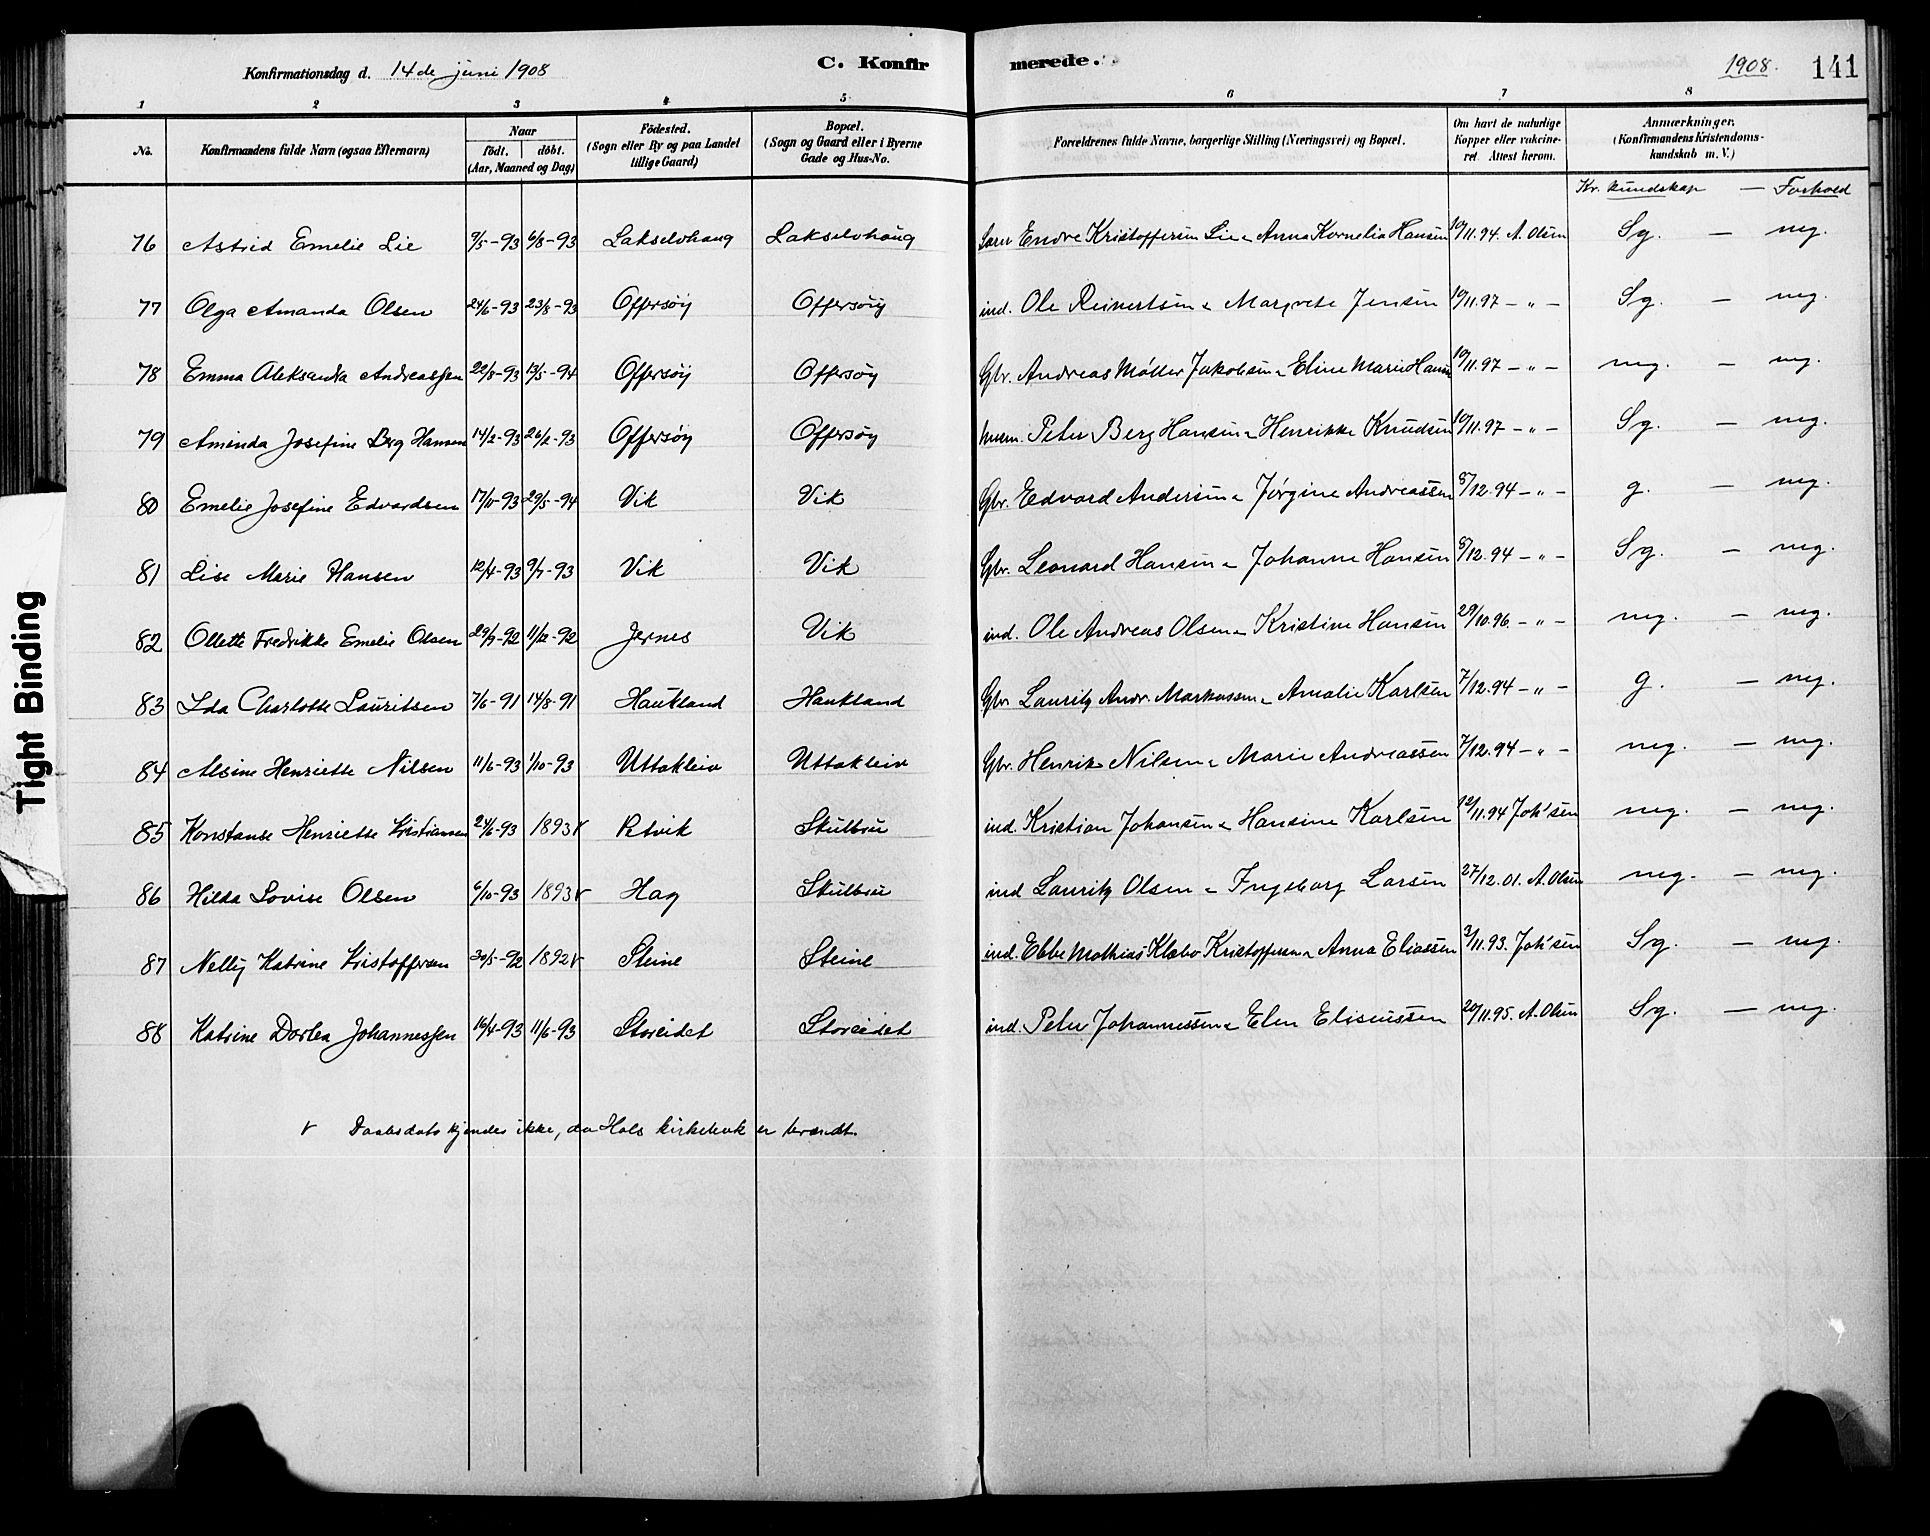 Konfirmationsdag d. 14de juni 1908
C. Konfirmerede.
1908. 141
1 2 3 4 5 6 7 8
No.
Konfirmandens fulde Navn (ogsaa Efternavn)
Naar
födt. döbt.
(Aar, Maaned og Dag)
Födested.
(Sogn eller By og paa Landet
tillige Gaard)
Bopæl.
(Sogn og Gaard eller i Byerne
Gade og Hus-No.
Forældrenes fulde Navne, borgerlige Stilling (Næringsvei) og Bopæl.
Om havt de naturlige
Kopper eller vakcine-
ret. Attest herom.
Anmærkninger.
(Konfirmandens Kristendoms-
kundskab m. V.)
Kr. kundskap — Forhold
76 Astrid Emelie Lie 9/5-93 6/8-93 Lakselvhaug Lakselvhaug Lærer Endre Kristoffersen Lie & Anna Kornelia Hansen 10/11.94. A. Olsen Sg. — mg.
77 Olga Amanda Olsen 24/6-93 23/8-93 Offersöy Offersöy ind. Ole Reinertsen & Margrete Jensen 10/11.97 — " — Sg. — mg.
78 Emma Aleksandra Andreassen 22/8-93 13/5-94 Offersöy Offersöy Gbr. Andreas Møller Jakobsen & Eline Marie Hansen 10/11.97 — " — mg. — mg.
79 Aminda Josefine Berg Hansen 14/2-93 26/2-93 Offersöy Offersöy husm. Peter Berg Hansen & Henrikke Knudsen 10/11.97 — " — Sg. — mg.
80 Emelie Josefine Edvardsen 17/10-93 29/5-94 Vik Vik Gbr. Edvard Andersen & Jørgine Andreassen 8/12.94 — " — g. — mg.
81 Lise Marie Hansen 12/4-93 9/7-93 Vik Vik Gbr. Leonard Hansen & Johanne Hansen 8/12.94 — " — Sg. — mg.
82 Ollette Fredrikke Emelie Olsen 29/9-92 11/12-92 Jernes Vik ind. Ole Andreas Olsen & Kristine Hansen 29/10.96. — " — mg. — mg.
83 Ida Charlotte Lauritsen 7/6-91 14/8-91 Haukland Haukland Gbr. Lauritz Andr. Markussen & Amalie Karlsen 7/12.94 — " — g. — mg.
84 Alsine Henriette Nilsen 11/6-93 1/10-93 Uttakleiv Uttakleiv Gbr. Henrik Nilsen & Marie Andreassen 7/12.94 — " — mg. — mg.
85 Konstanse Henriette Kristiansen 24/6-93 1893 v Petvik Skulbru ind. Kristian Johansen & Hansine Karlsen 12/11.94 Joh'sen mg. — mg.
86 Hilda Lovise Olsen 6/10-93 1893 v Hag Skulbru ind Lauritz Olsen & Ingeborg Larsen 27/12.01. A. Olsen mg. — mg.
87 Nelly Katrine Kristoffersen 30/5-92 1892 v Steine Steine ind. Ebbe Mathias Klæbo Kristoffersen & Anna Eliassen 3/11.93. Joh'sen Sg. — mg.
88 Katrine Dortea Johannessen 16/4-93 11/6-93 Storeidet Storeidet ind. Peter Johannessen & Elen Eliseussen 20/11.95. A. Olsen Sg. — mg.
v Daabsdato kjendes ikke, da Hols kirkebok er brændt.
Tight Binding